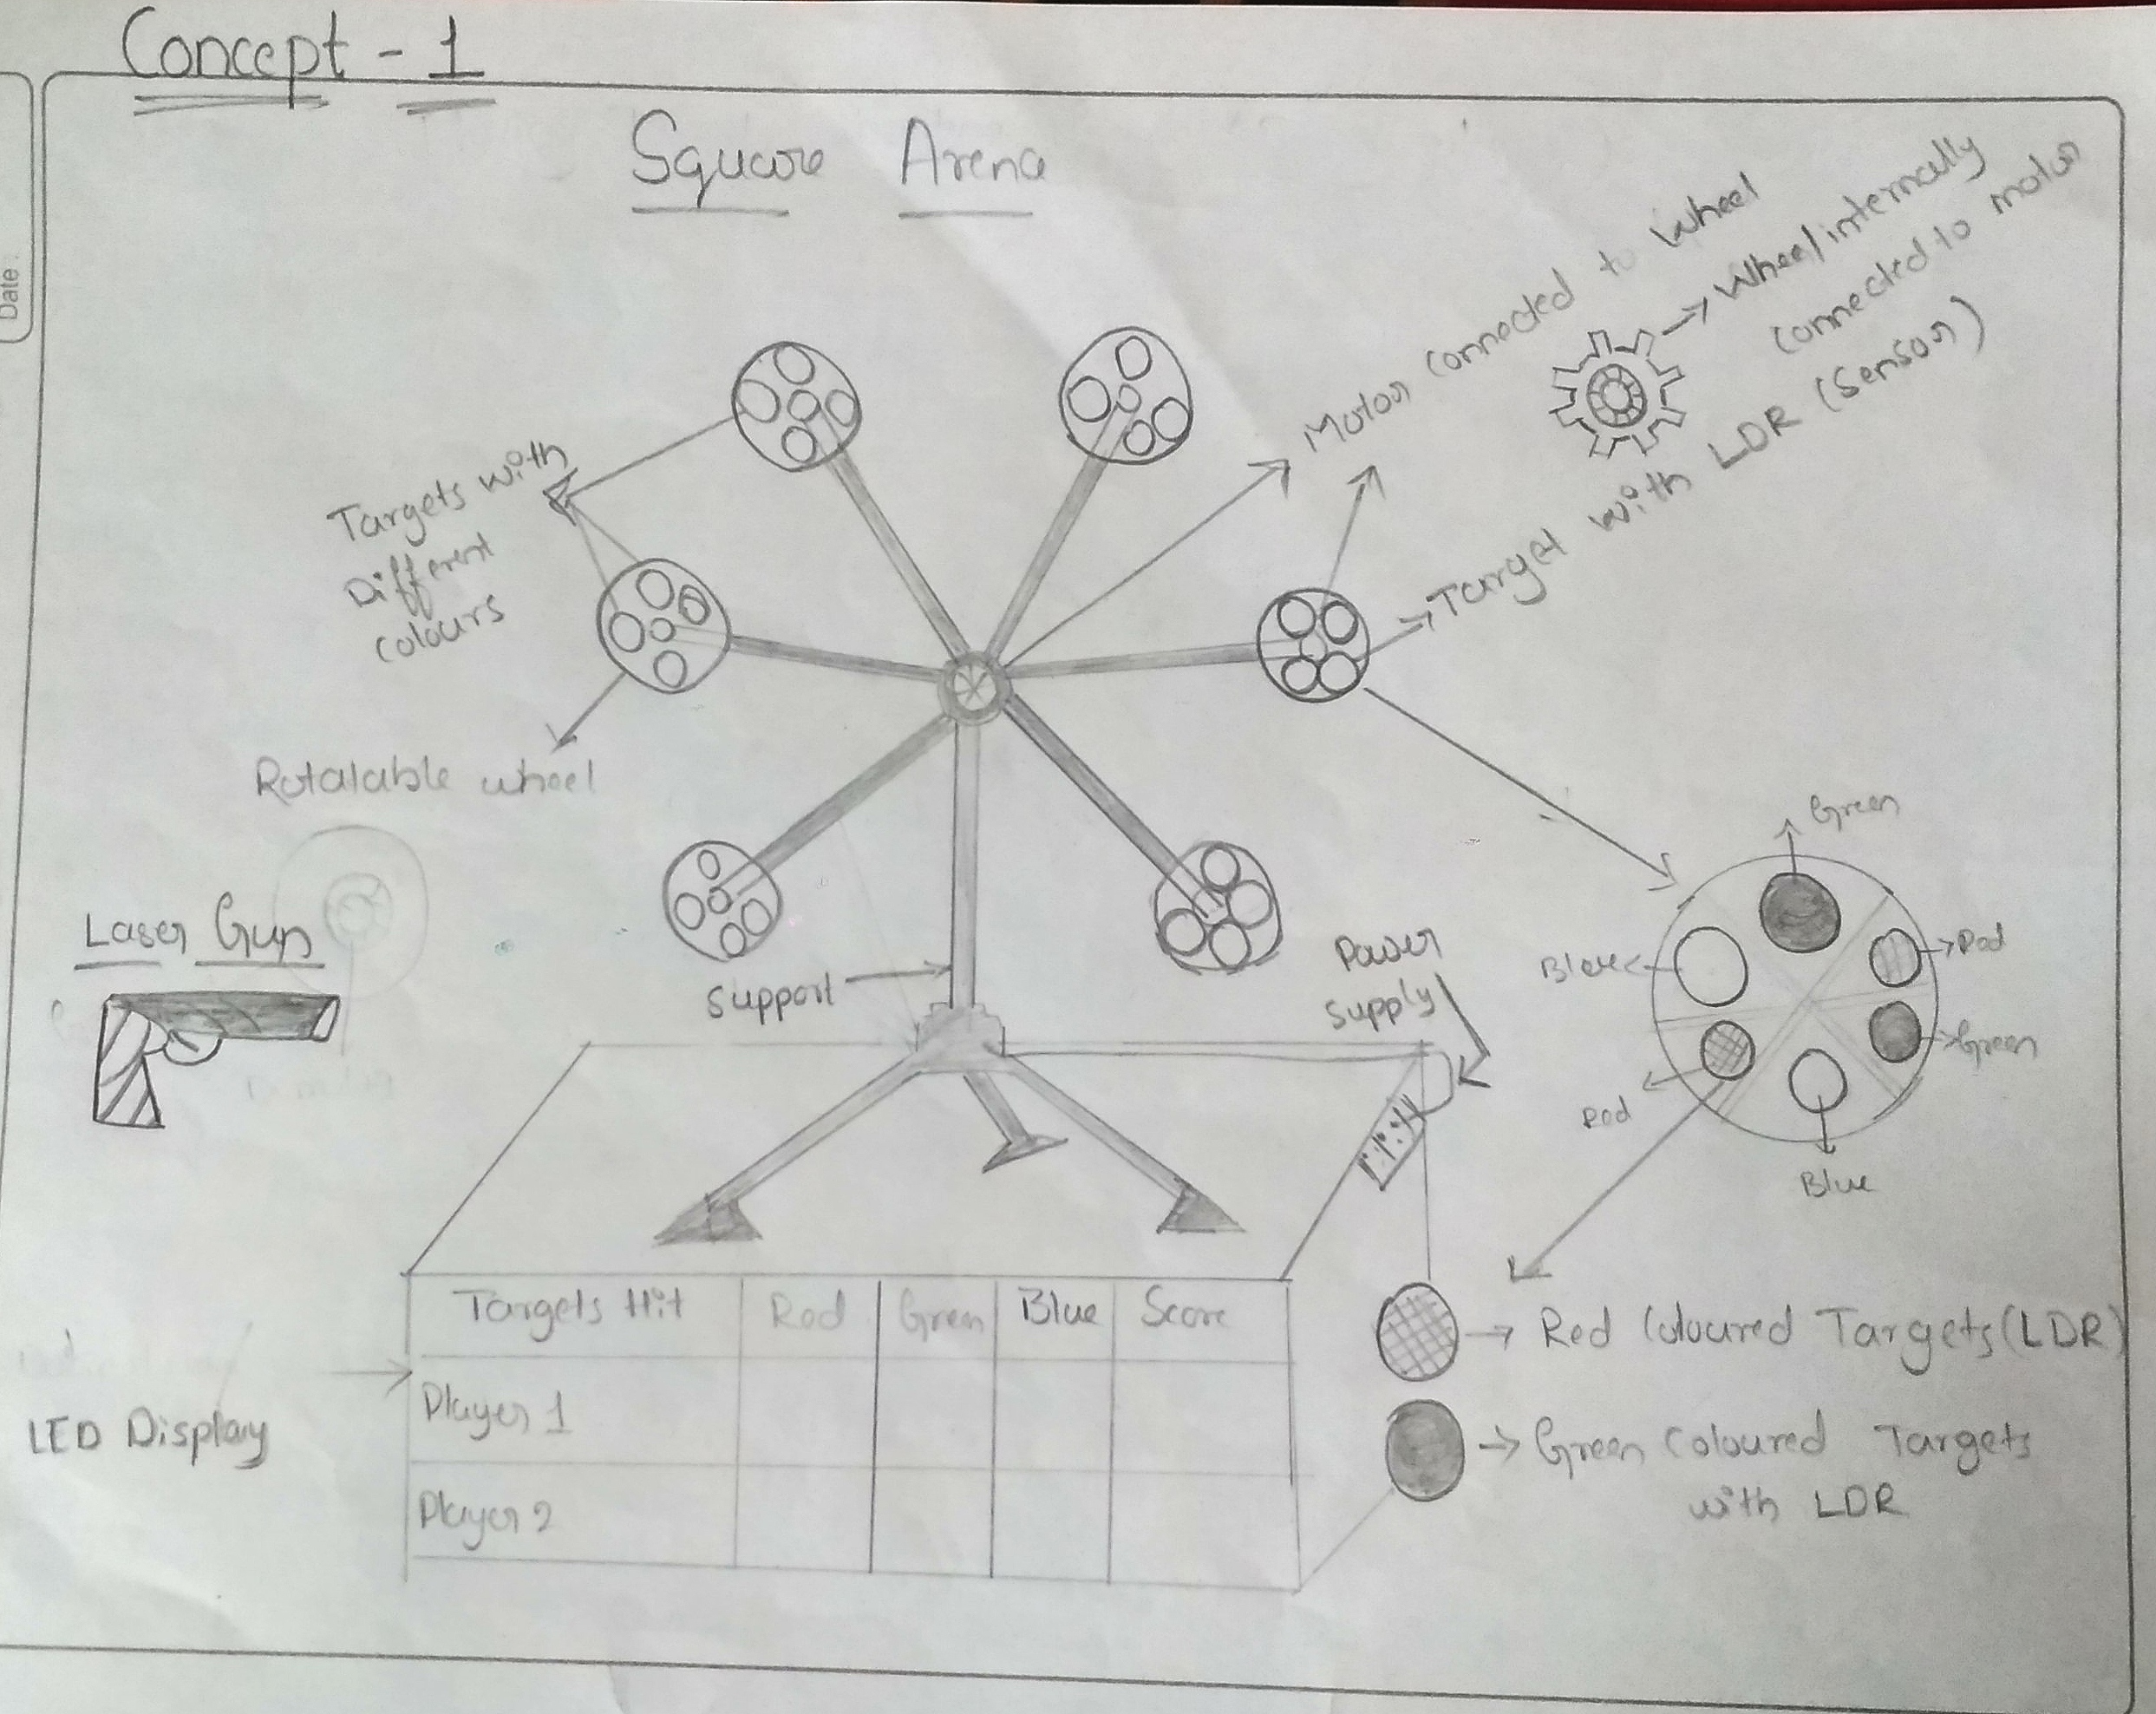 Concept - 1
Date:
Square Arena
Motor connected to wheel
Wheel internally
connected to motor
Target with LDR (Sensor)
Targets with
Different
colours
Rotatable wheel
Green
Blue
Red
Green
Red
Blue
Laser Gun
Support
Power
Supply
Targets Hit Red Green Blue Score
Player 1
Player 2
LED Display
Red Coloured Targets (LDR)
Green Coloured Targets
with LDR